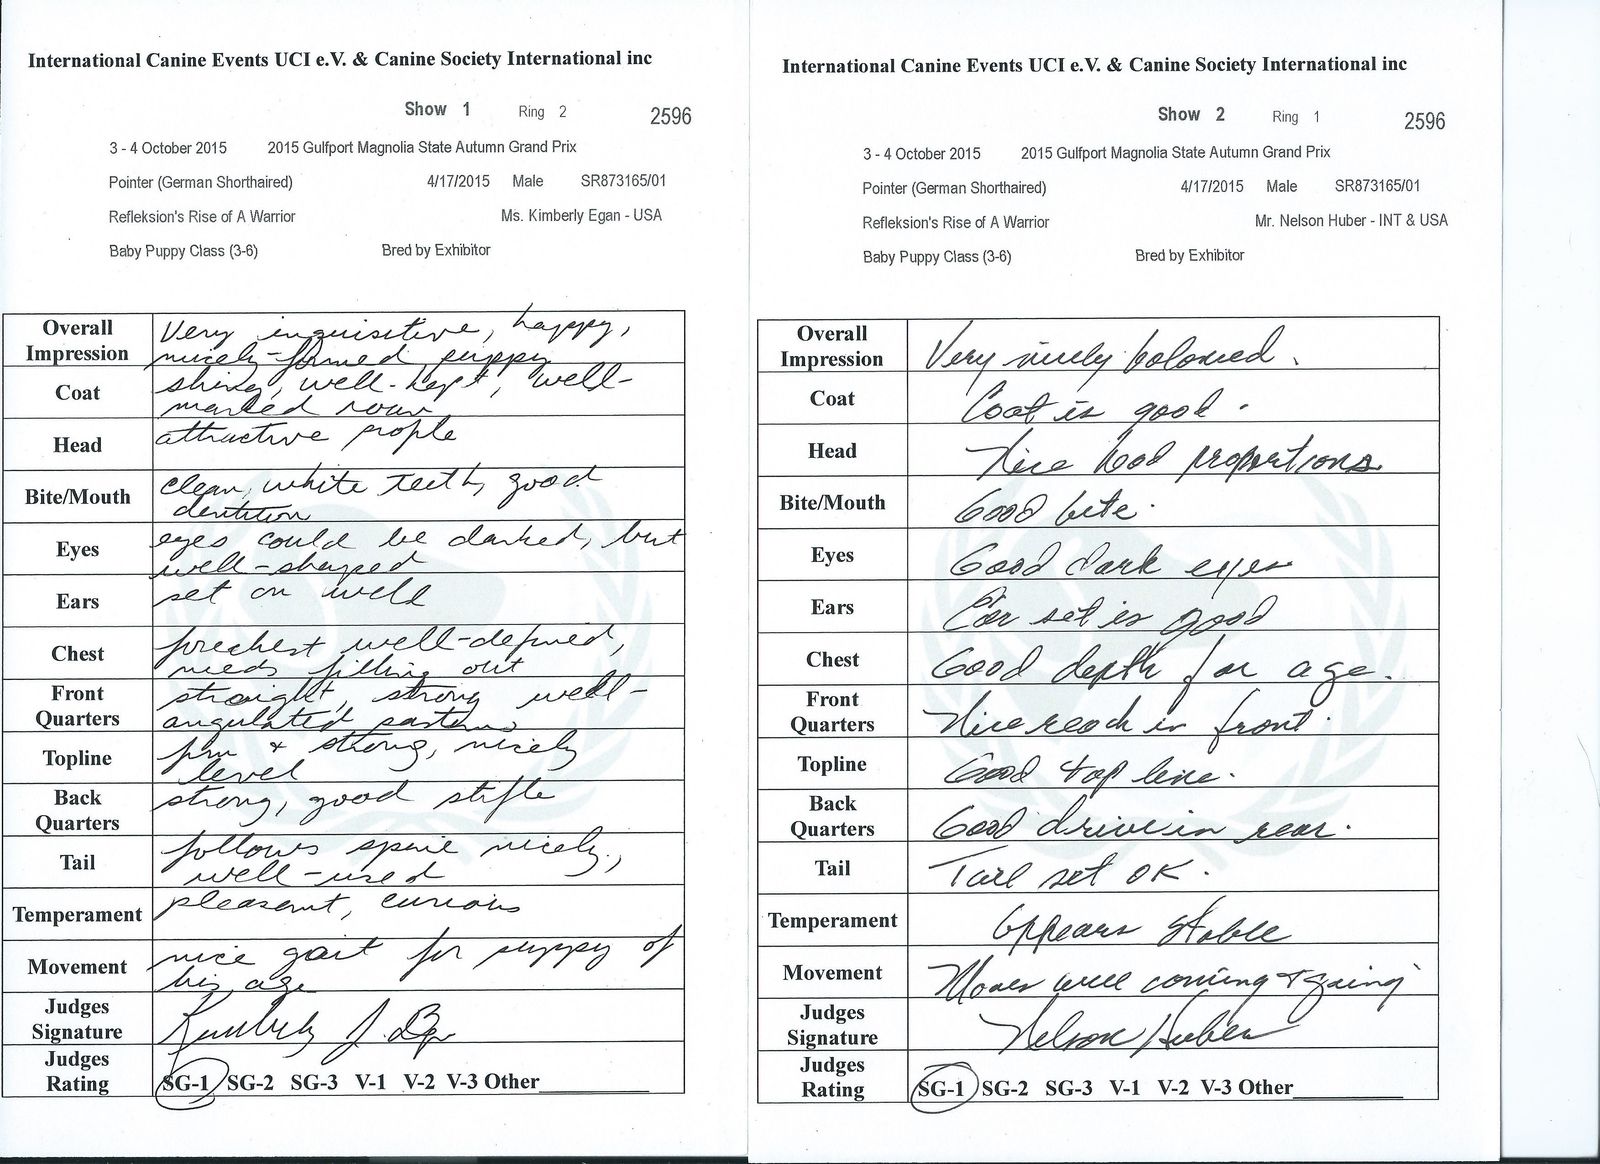 International Canine Events UCI e.V. & Canine Society International inc
Show 1 Ring 2 2596
3 - 4 October 2015 2015 Gulfport Magnolia State Autumn Grand Prix
Pointer (German Shorthaired) 4/17/2015 Male SR873165/01
Refleksion's Rise of A Warrior Ms. Kimberly Egan - USA
Baby Puppy Class (3-6) Bred by Exhibitor
Overall Impression Very inquisitive, happy,
nicely-formed puppy
Coat shiny, well-kept, well-
marked roan
Head attractive profile
Bite/Mouth clean, white teeth, good
dentition
Eyes eyes could be darked, but
well-shaped
Ears set on well
Chest forechest well-defined,
needs filling out
Front Quarters straight, strong well-
angulated pasterns
Topline firm & strong, nicely
level
Back Quarters strong, good stifle
Tail follows spine nicely,
well-used
Temperament pleasant, curious
Movement nice gait for puppy of
his age
Judges Signature Kimberly J.
Judges Rating SG-1 SG-2 SG-3 V-1 V-2 V-3 Other
International Canine Events UCI e.V. & Canine Society International inc
Show 2 Ring 1 2596
3 - 4 October 2015 2015 Gulfport Magnolia State Autumn Grand Prix
Pointer (German Shorthaired) 4/17/2015 Male SR873165/01
Refleksion's Rise of A Warrior Mr. Nelson Huber - INT & USA
Baby Puppy Class (3-6) Bred by Exhibitor
Overall Impression Very nicely balanced.
Coat Coat is good.
Head Nice head proportions
Bite/Mouth Good bite.
Eyes Good dark eyes
Ears Ear set is good
Chest Good depth for age.
Front Quarters Nice reach in front.
Topline Good top line.
Back Quarters Good drive in rear.
Tail Tail set OK.
Temperament Appears Stable
Movement Moves well coming & going
Judges Signature Nelson Huber
Judges Rating SG-1 SG-2 SG-3 V-1 V-2 V-3 Other